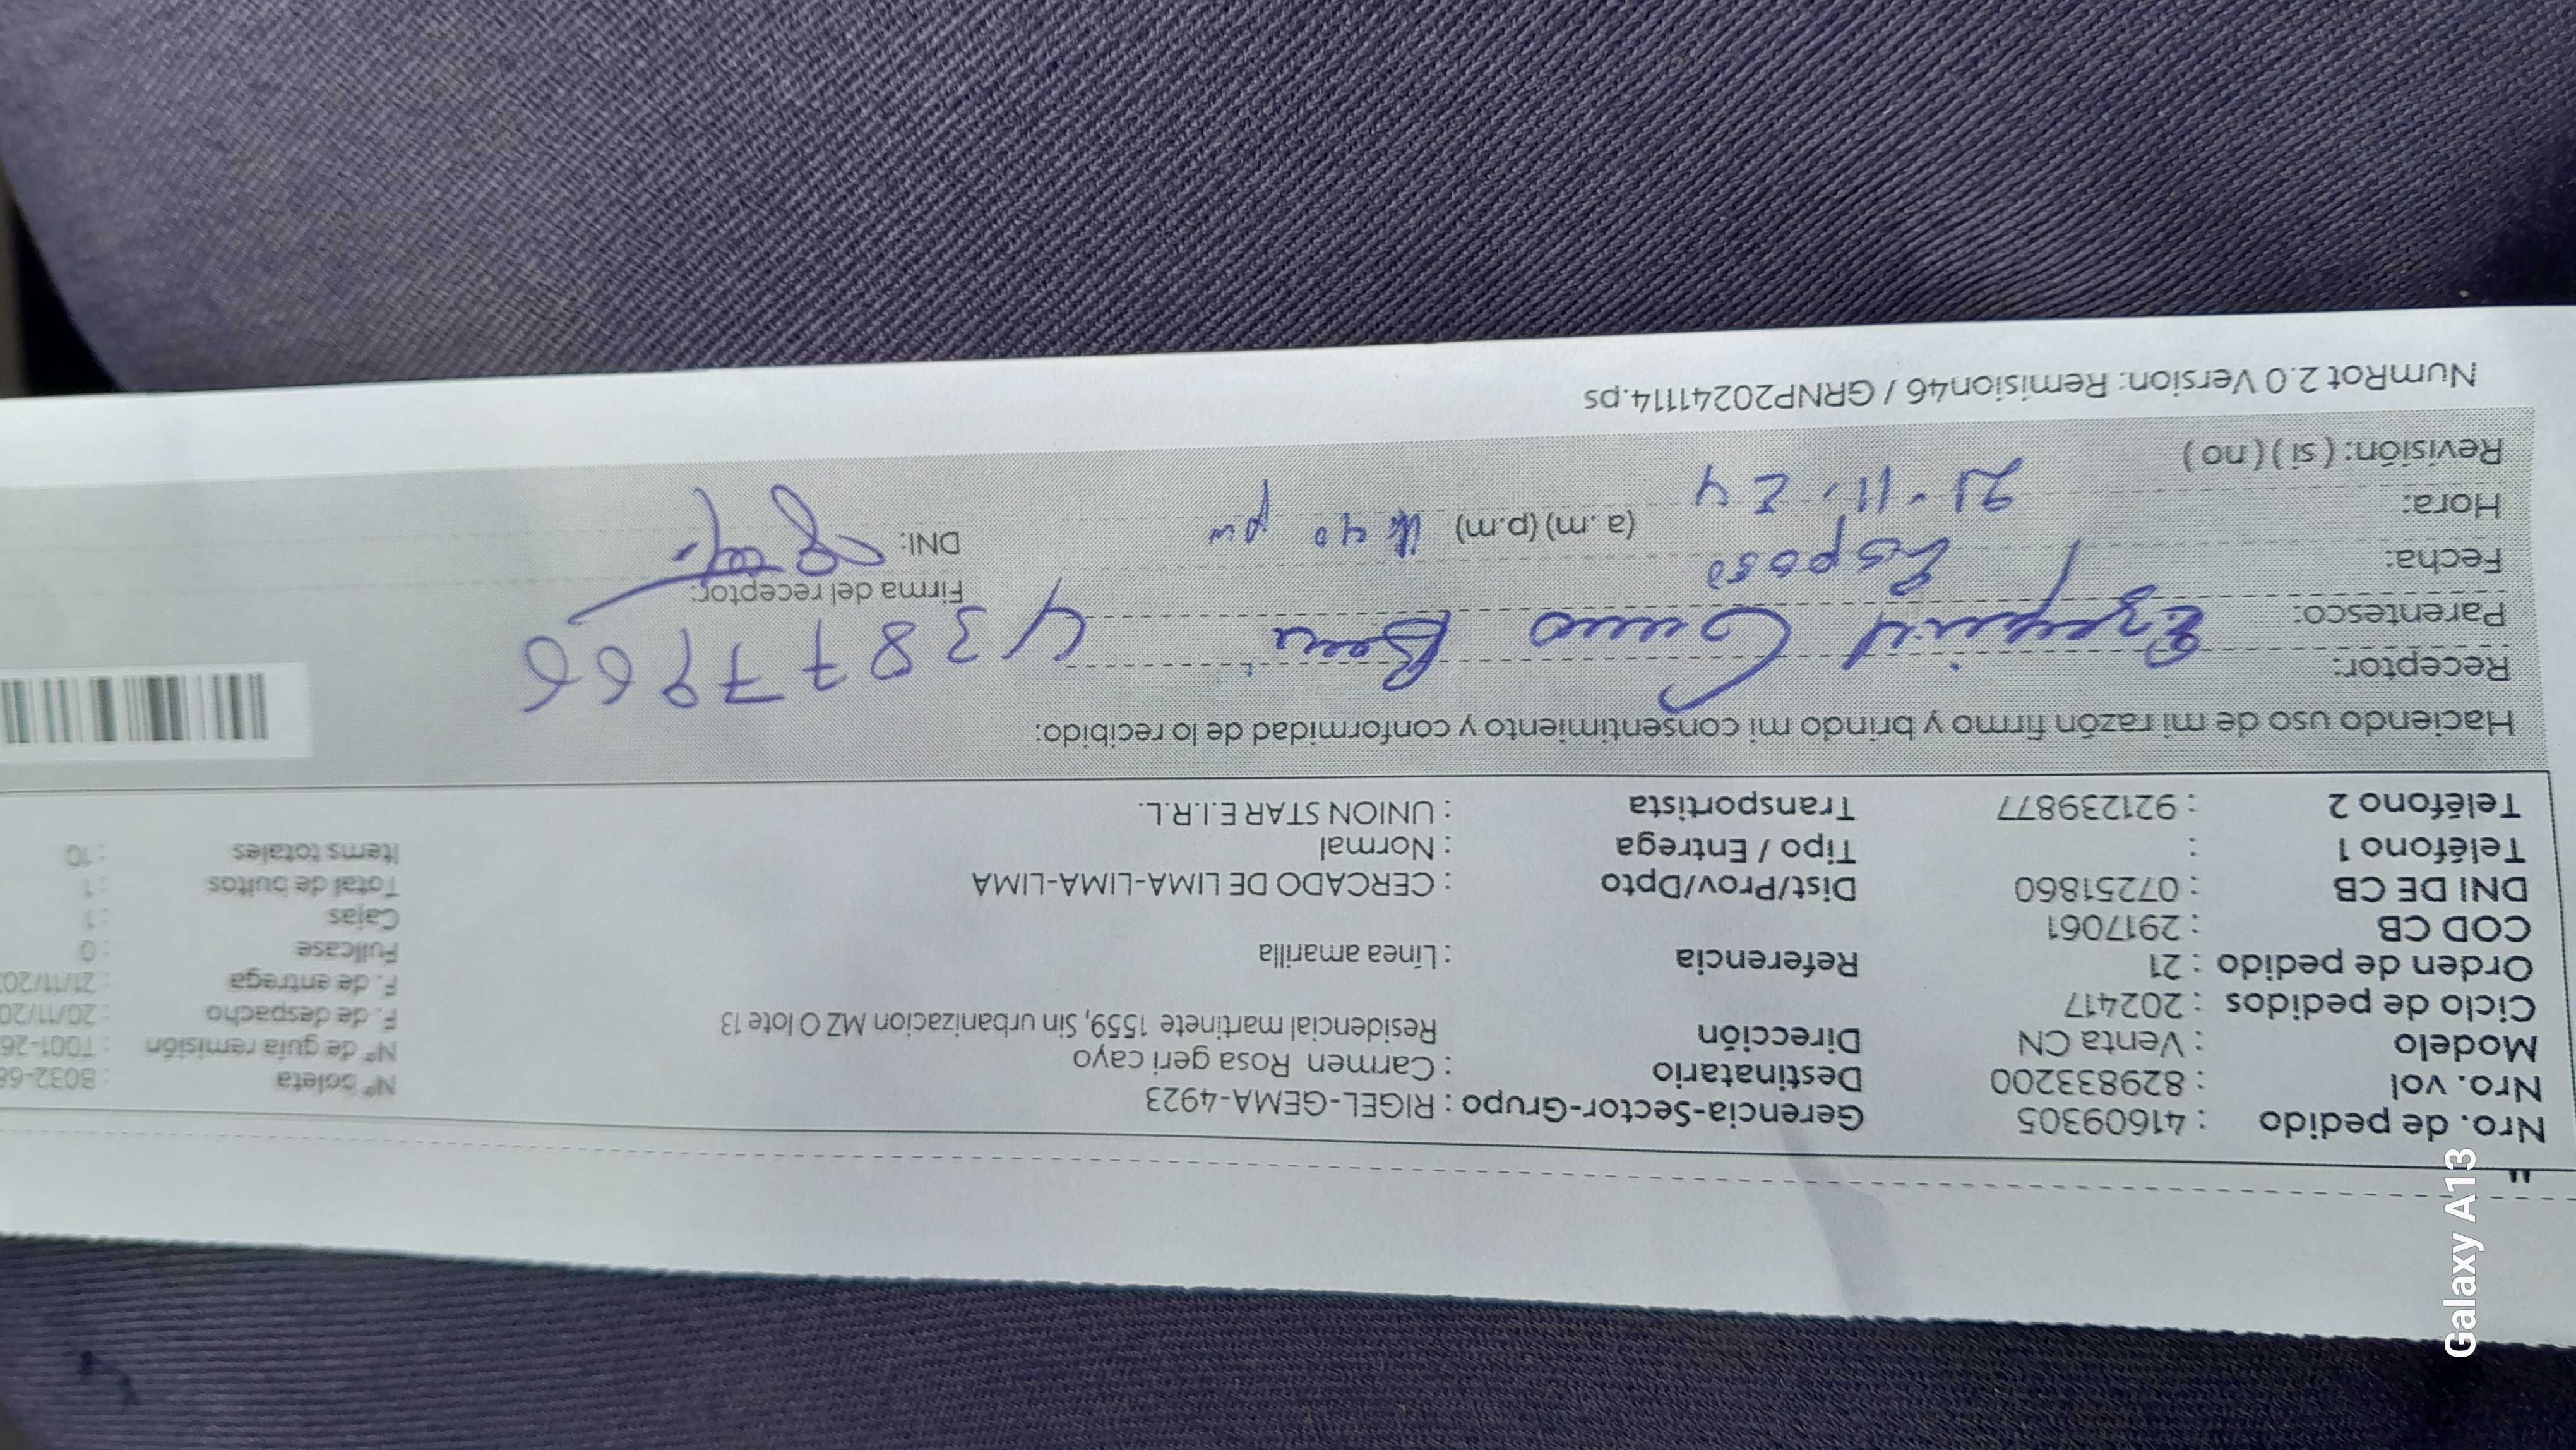 Nro. de pedido : 41609305 Gerencia-Sector-Grupo : RIGEL-GEMA-4923 Nº boleta : B032-68
Nro. vol : 829833200 Destinatario : Carmen Rosa geri cayo Nº de guía remisión : T001-26
Modelo : Venta CN Dirección Residencial martinete 1559, Sin urbanizacion MZ O lote 13 F. de despacho : 20/11/20
Ciclo de pedidos : 202417 F. de entrega : 21/11/202
Orden de pedido : 21 Referencia : Línea amarilla Fullcase : 0
COD CB : 2917061 Cajas : 1
DNI DE CB : 07251860 Dist/Prov/Dpto : CERCADO DE LIMA-LIMA-LIMA Total de bultos : 1
Teléfono 1 : Tipo / Entrega : Normal Items totales : 10
Teléfono 2 : 921239877 Transportista : UNION STAR E.I.R.L.
Haciendo uso de mi razón firmo y brindo mi consentimiento y conformidad de lo recibido:
Receptor: Ezequiel
Parentesco: Esposo Firma del receptor:
Fecha: 21.11.24 (a.m) (p.m) 40 pm DNI:
Hora:
Revisión: ( si ) ( no )
NumRot 2.0 Version: Remision46 / GRNP20241114.ps
Galaxy A13